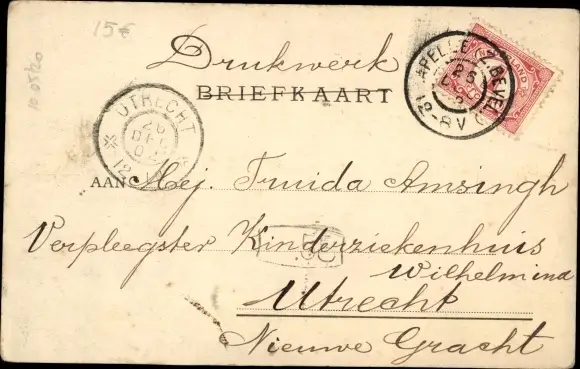 15€
10.05/20
Drukwerk
BRIEFKAART
UTRECHT
12
APELLE (Z. BEVEL
12-8V
NEDERLAND
AAN Mej. Truida Amsingh
Verpleegster Kinderziekenhuis
Wilhelmina
Utrecht
Nieuwe Gracht